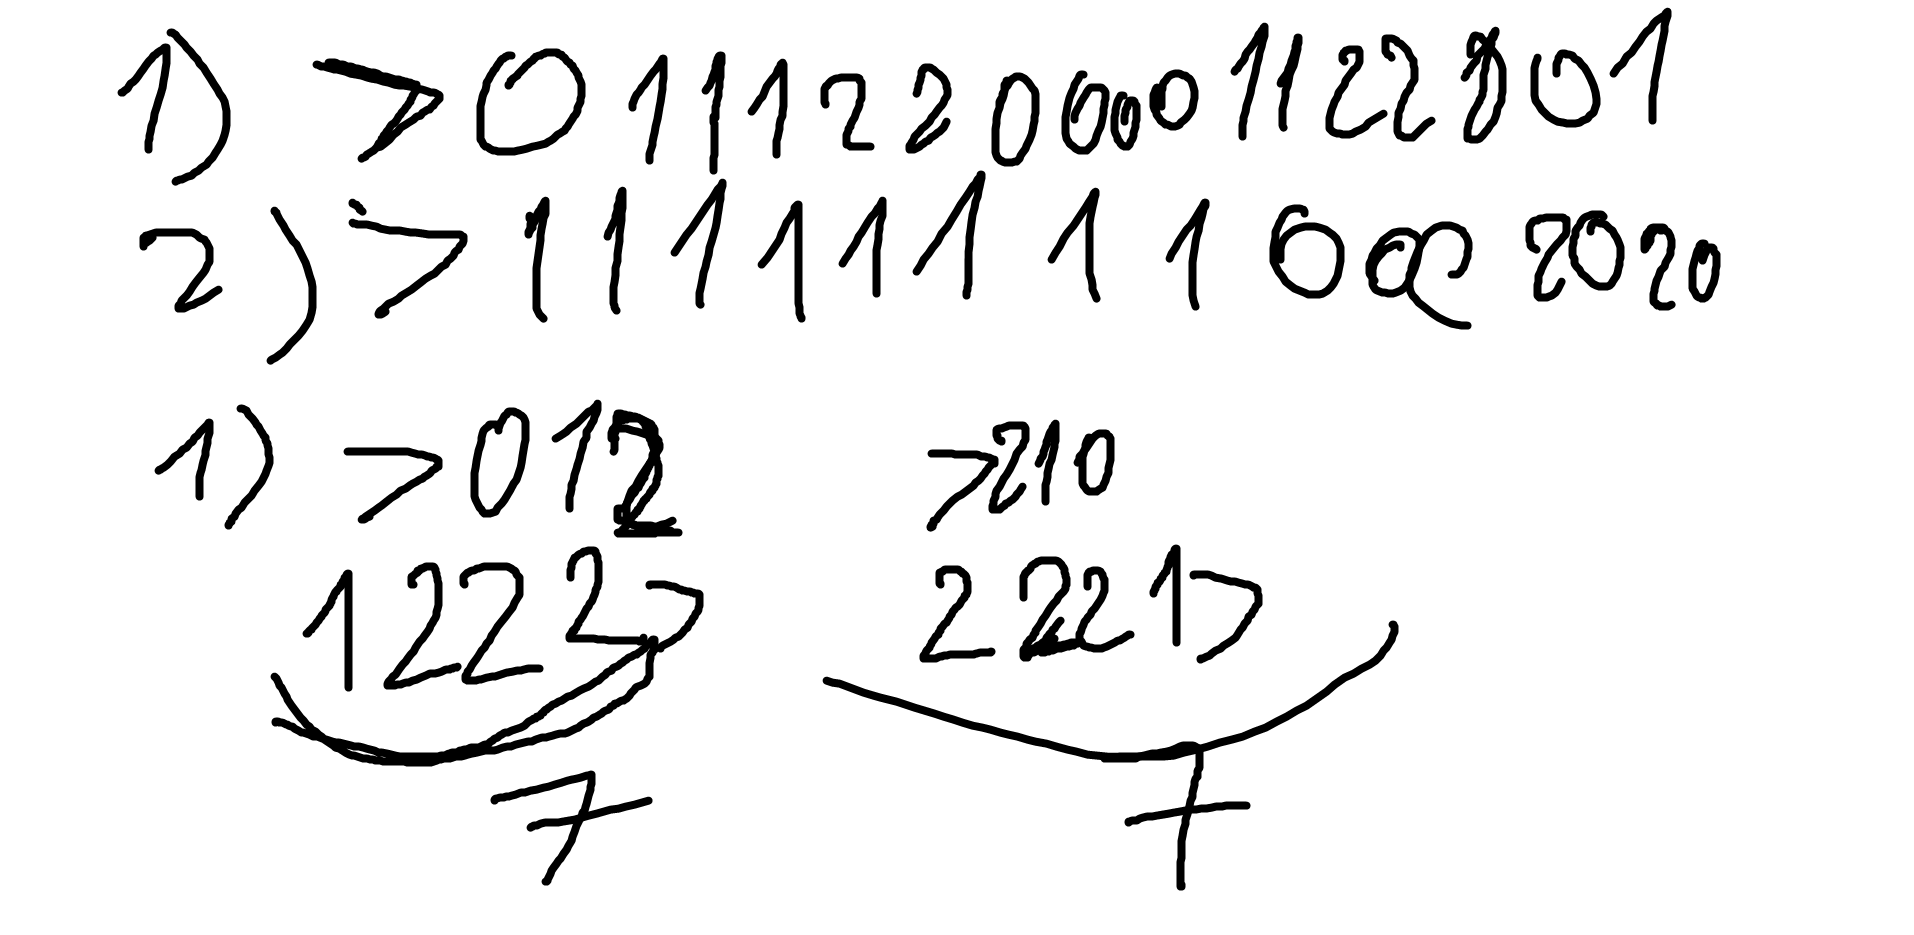 1) >01112200001122801
2) >11111111000202020
1) >012 >210
1222> 2221>
7 7